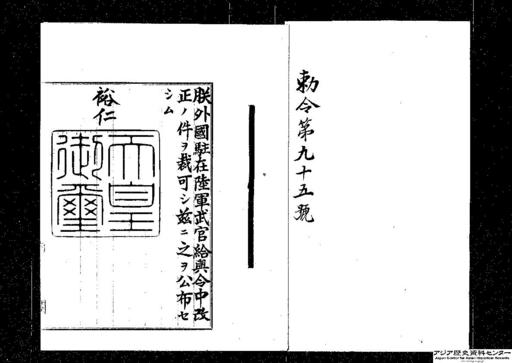 勅令第九十五號
朕外國駐在陸軍武官給與令中改
正ノ件ヲ裁可シ玆ニ之ヲ公布セ
シム
裕仁
天皇
御璽
アジア歴史資料センター
Japan Center for Asian Historical Records